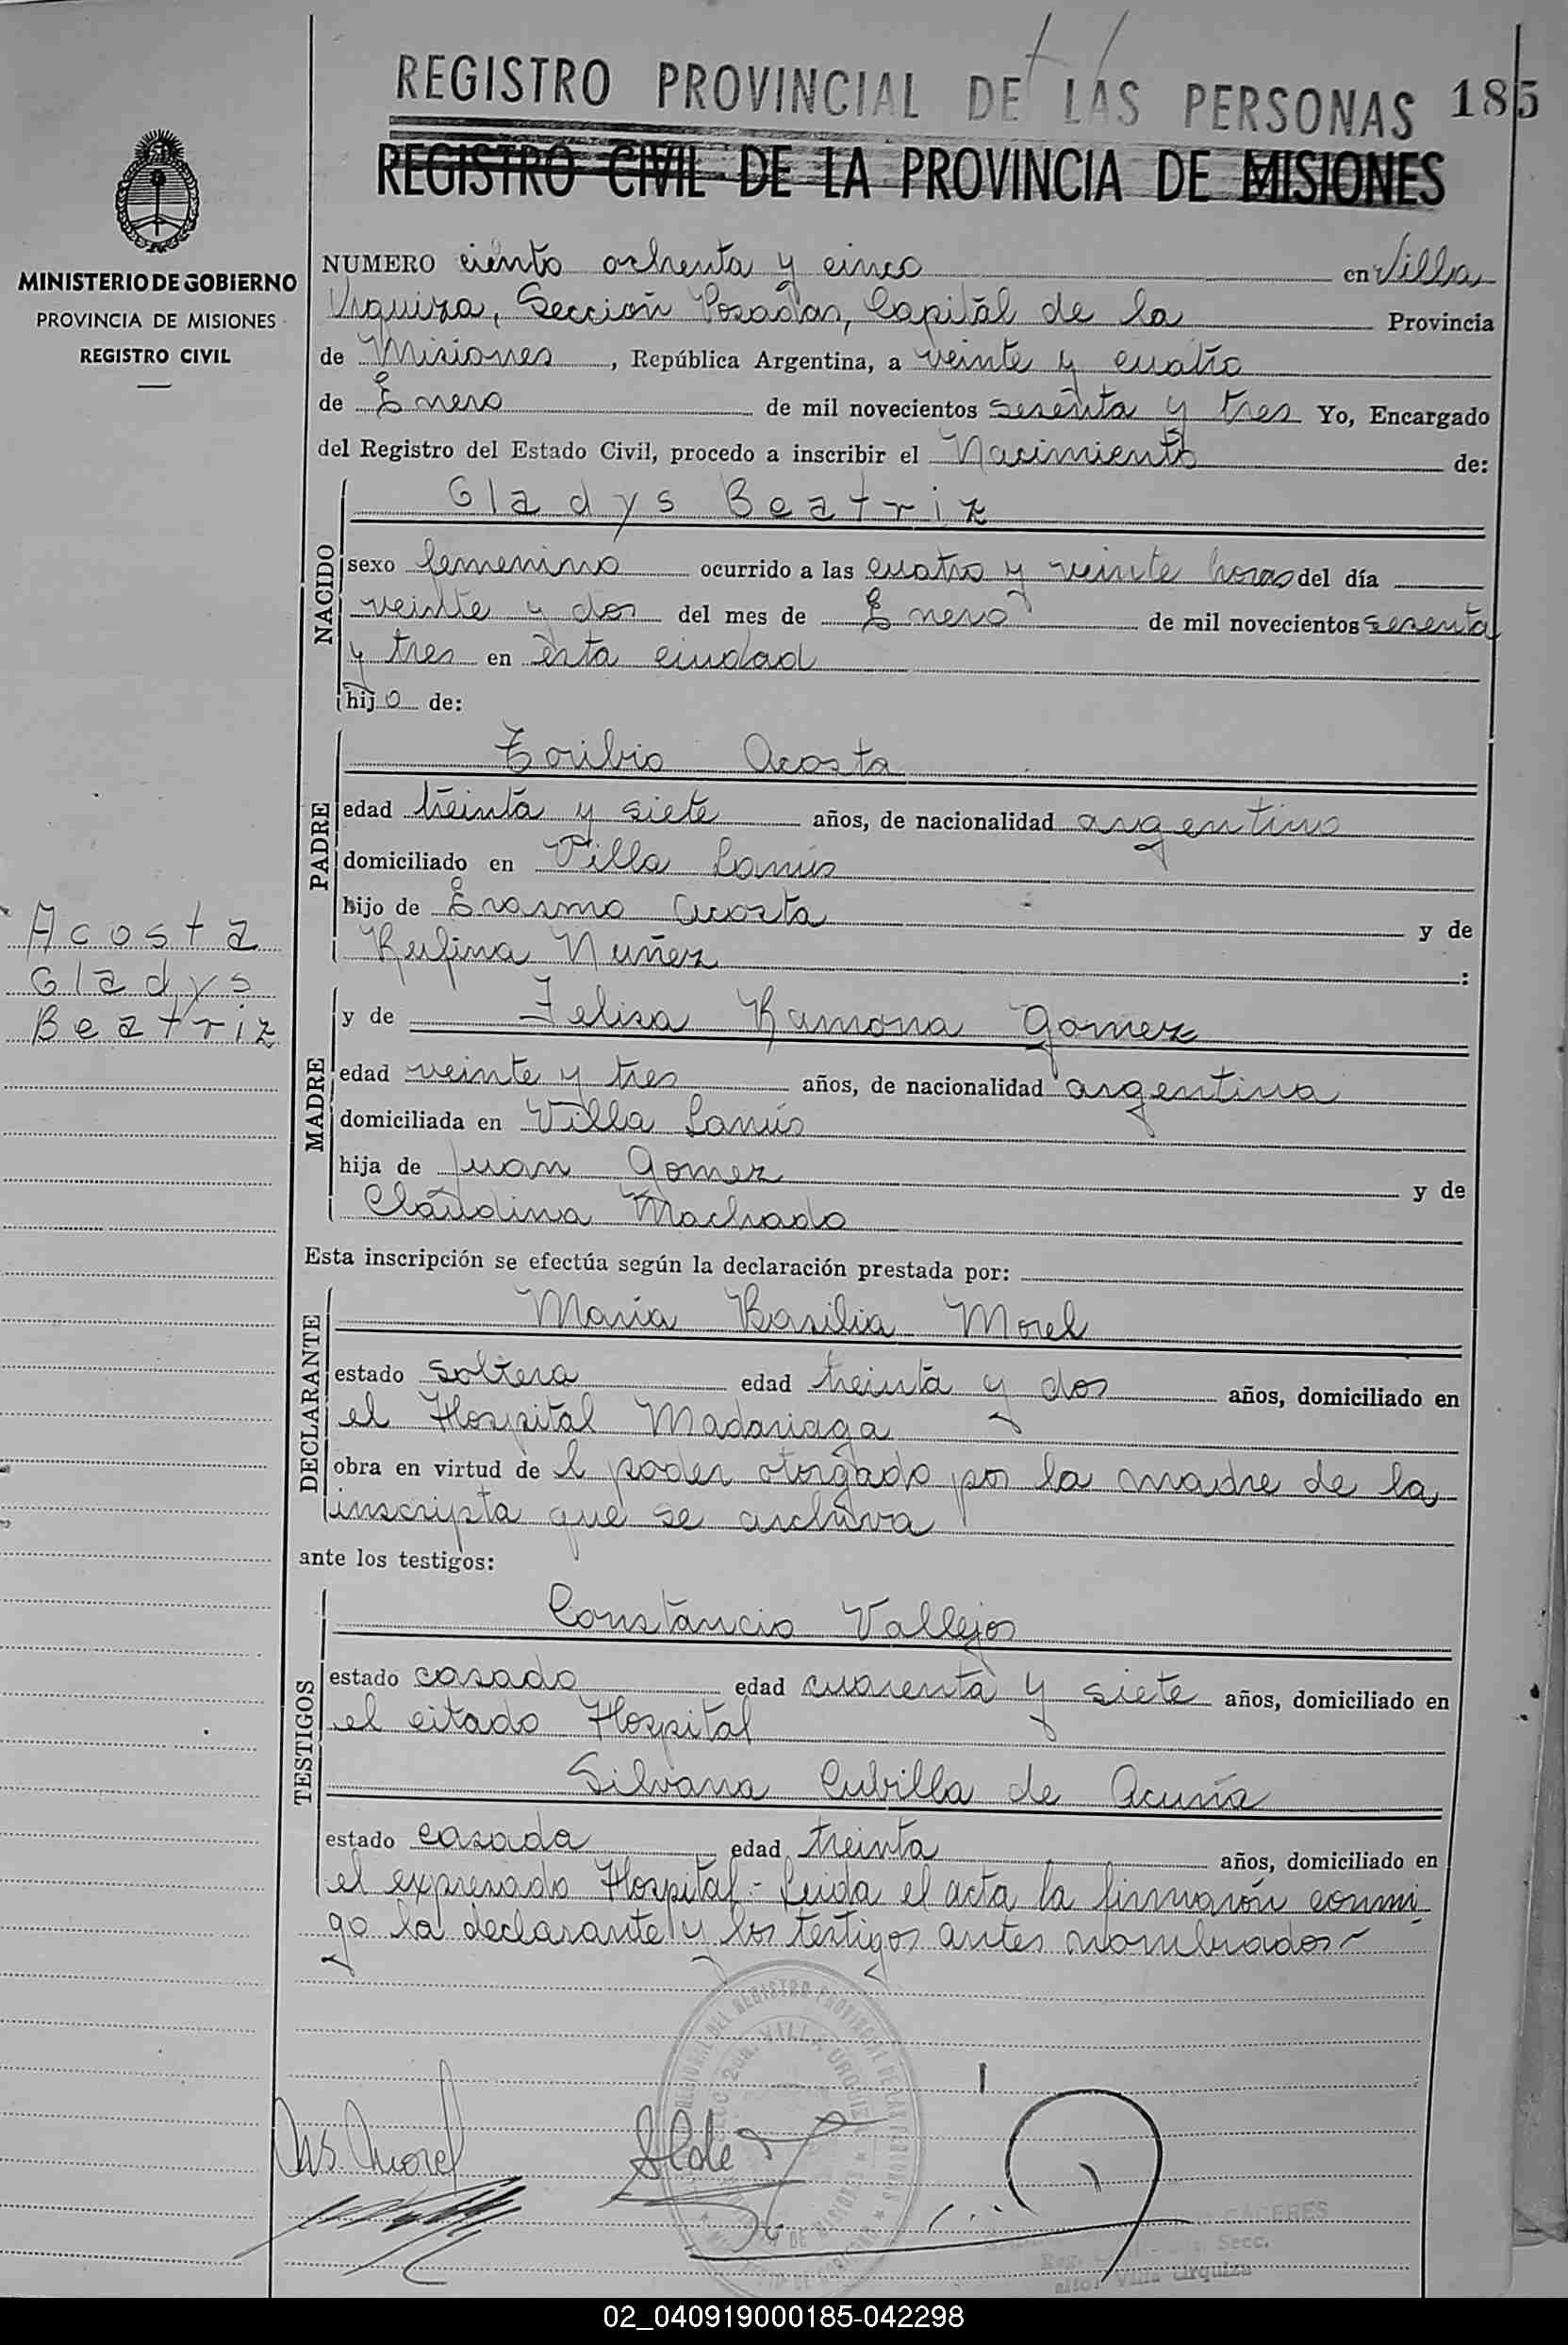 REGISTRO PROVINCIAL DE LAS PERSONAS 185
REGISTRO CIVIL DE LA PROVINCIA DE MISIONES
MINISTERIO DE GOBIERNO
PROVINCIA DE MISIONES
REGISTRO CIVIL
NUMERO ciento ochenta y cinco en Villa
Urquiza, Sección Posadas, Capital de la Provincia
de Misiones, República Argentina, a veinte y cuatro
de Enero de mil novecientos sesenta y tres Yo, Encargado
del Registro del Estado Civil, procedo a inscribir el Nacimiento de:
NACIDO
Gladys Beatriz
sexo femenino ocurrido a las cuatro y veinte horas del día
veinte y dos del mes de Enero de mil novecientos sesenta
y tres en ésta ciudad
hijo de:
PADRE
Toribio Acosta
edad treinta y siete años, de nacionalidad argentino
domiciliado en Villa Lanús
hijo de Erasmo Acosta y de
Rufina Nuñez :
Acosta
Gladys
Beatriz
MADRE
y de Felisa Ramona Gomez
edad veinte y tres años, de nacionalidad argentina
domiciliada en Villa Lanús
hija de Juan Gomez y de
Claudina Machado
Esta inscripción se efectúa según la declaración prestada por:
DECLARANTE
María Basilia Morel
estado soltera edad treinta y dos años, domiciliado en
el Hospital Madariaga
obra en virtud de l poder otorgado por la madre de la
inscripta que se archiva
ante los testigos:
TESTIGOS
Constancio Vallejos
estado casado edad cuarenta y siete años, domiciliado en
el citado Hospital
Silvana Cubilla de Acuña
estado casada edad treinta años, domiciliado en
el expresado Hospital.- Leida el acta la firmarón conmi
go la declarante y los testigos antes nombrados-
M.S. Morel
CACERES
Secc.
Villa Urquiza
02_040919000185-042298